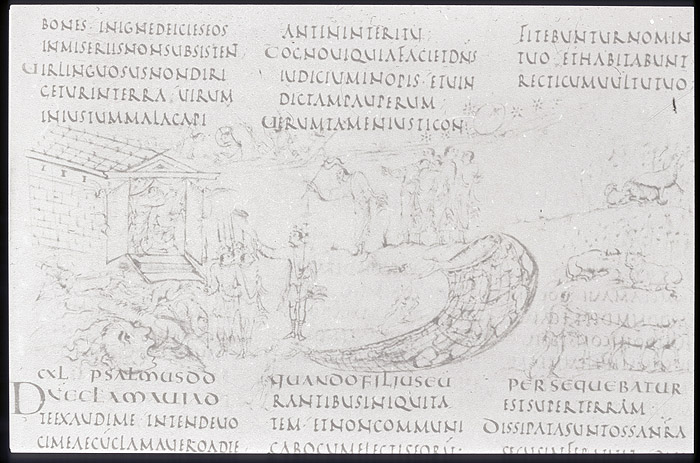 BONES INIGNEDEICIESEOS
INMISERIISNONSUBSISTEN
UIRLINGUOSUSNONDIRI
CETURINTERRA UIRUM
INIUSTUMMALACAPI
ANTININTERITU
COGNOUIQUIAFACIETDNS
IUDICIUMINOPIS ETUIN
DICTAMPAUPERUM
UERUMTAMENIUSTICON
FITEBUNTURNOMIN
TUO ETHABITABUNT
RECTICUMUULTUTUO
CXL PSALMUSDD
DNECLAMAUIAD
TEEXAUDIME INTENDEUO
CIMEAECUCLAMAUEROADTE
QUANDOFILIUSEU
RANTIBUSINIQUITA
TEM ETNONCOMMUNI
CABOCUMELECTISEORU
PERSEQUEBATUR
ESTSUPERTERRAM
DISSIPATASUNTOSSANRA